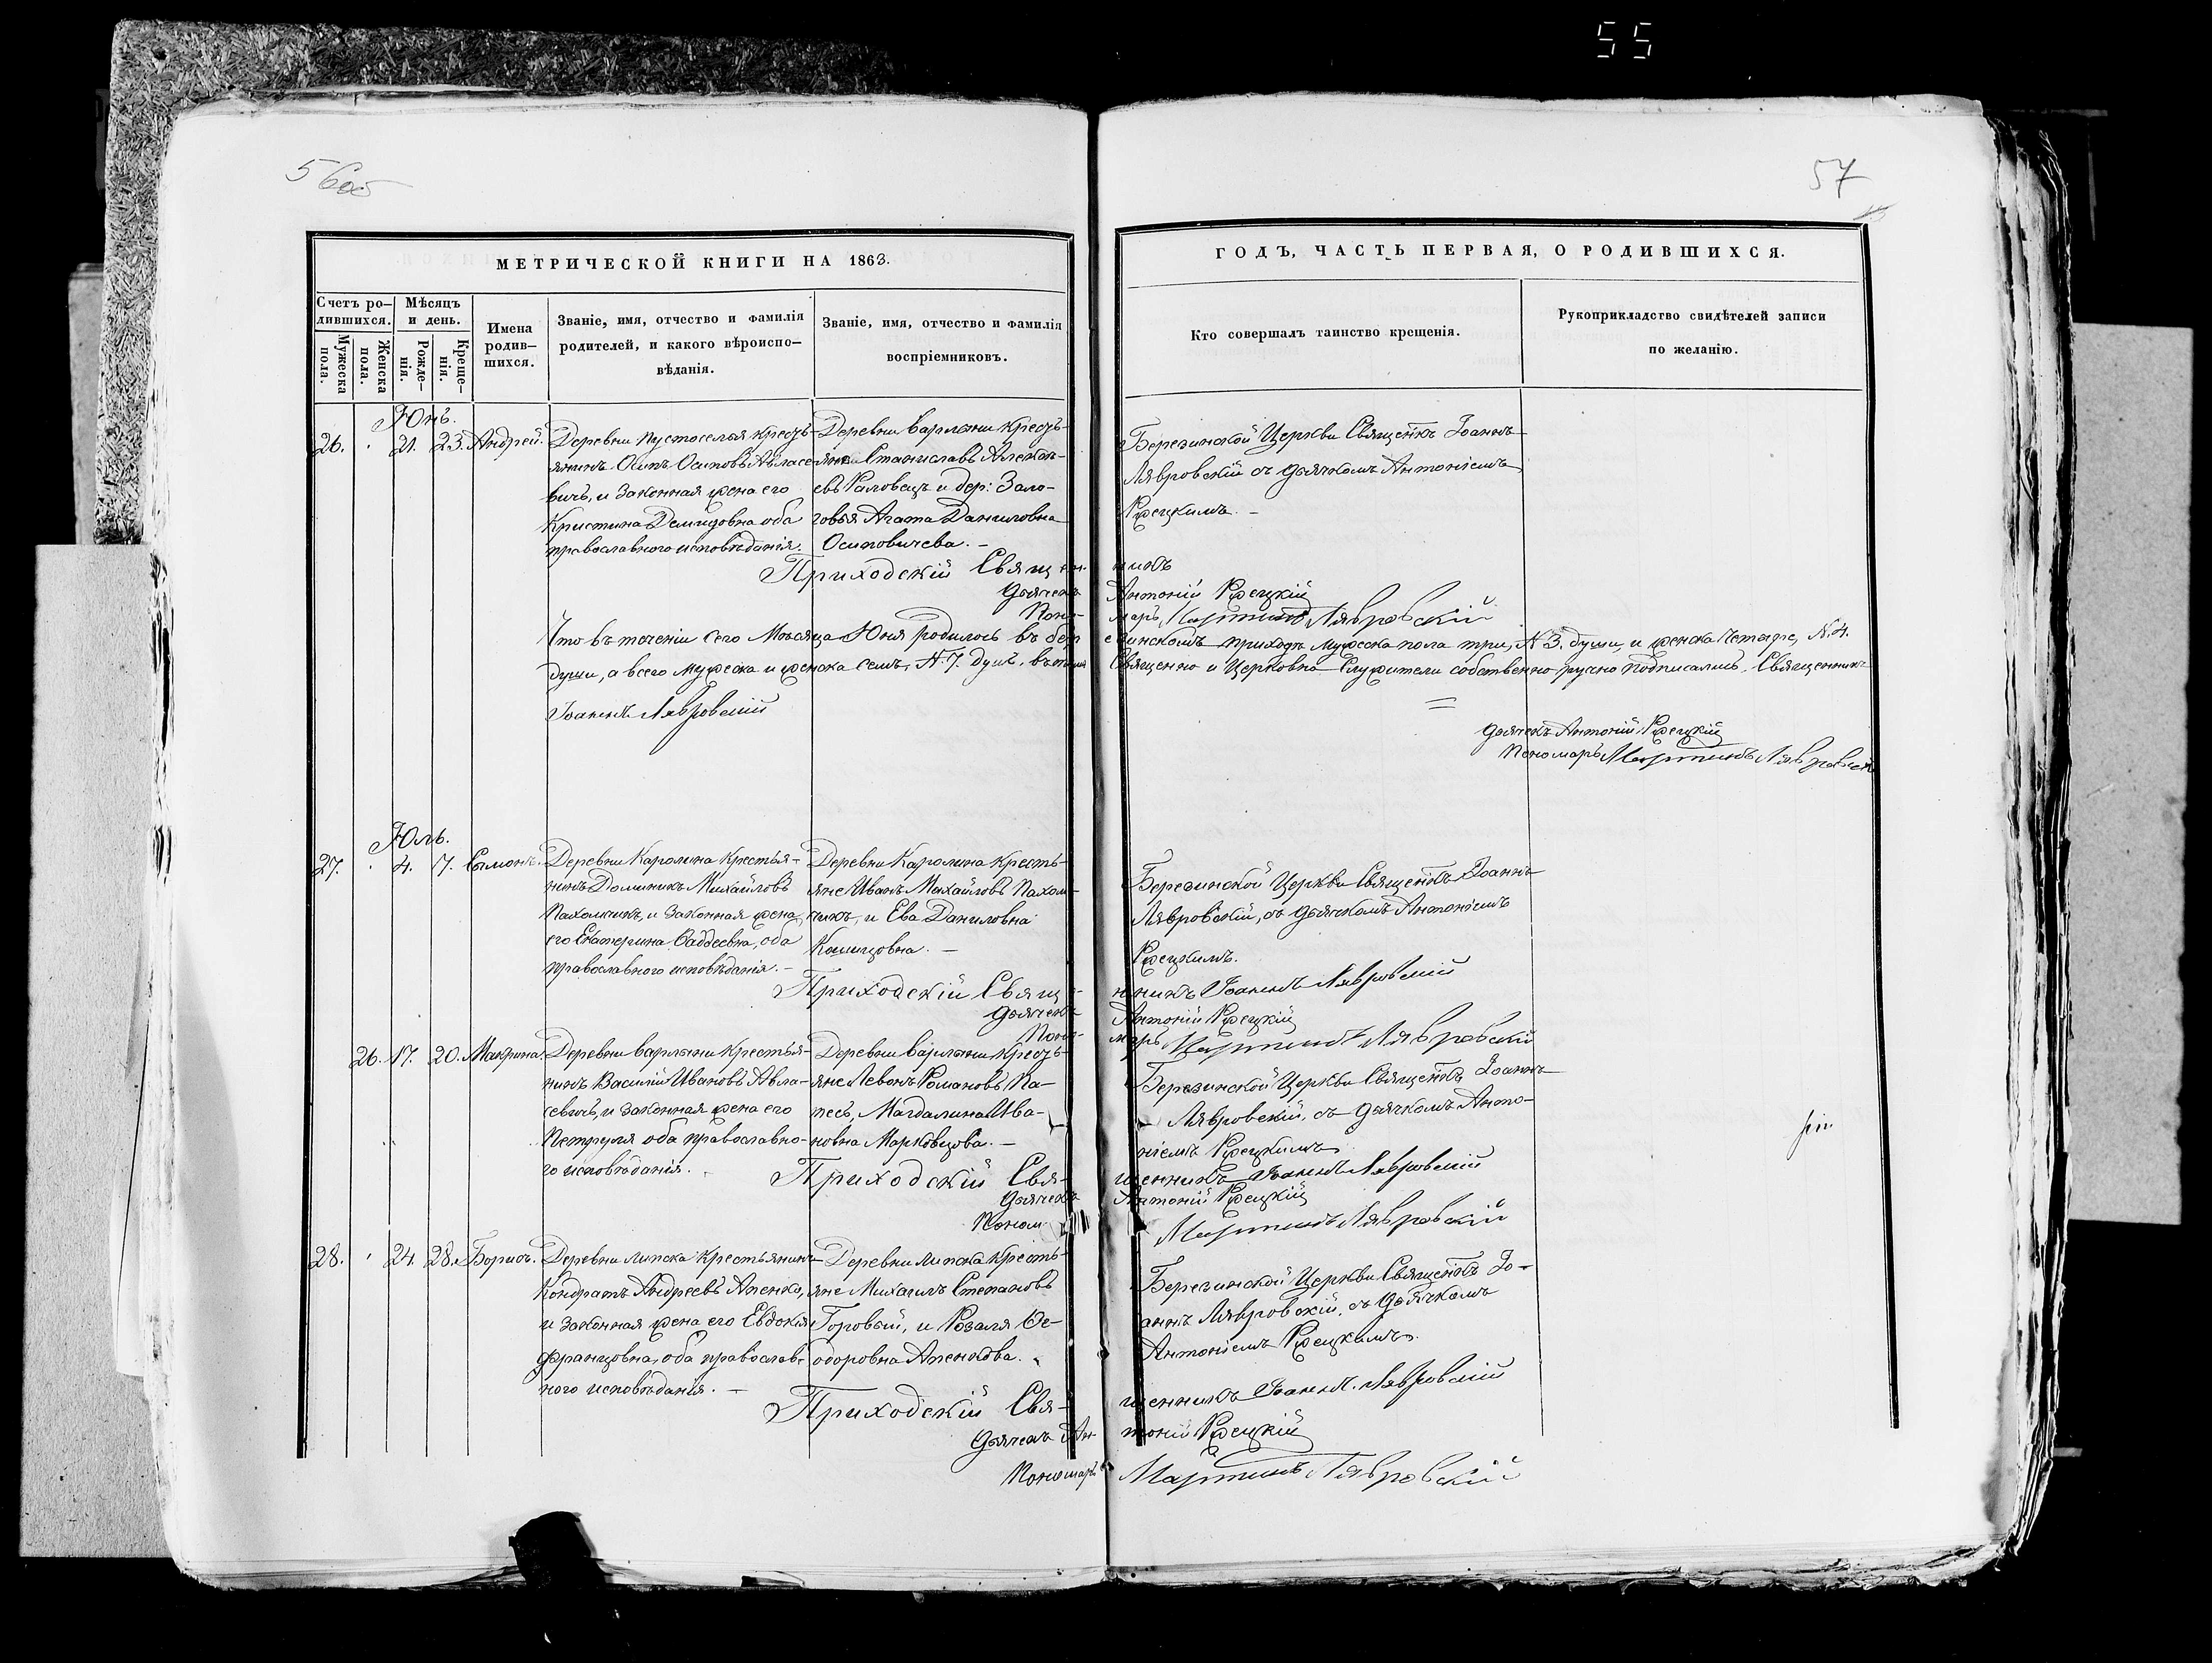 55
56об
57
МЕТРИЧЕСКОЙ КНИГИ НА 1863.
ГОДЪ, ЧАСТЬ ПЕРВАЯ, О РОДИВШИХСЯ.
Счетъ ро-
дившихся.
Мужеска
пола.
Женска
пола.
Мѣсяцъ
и день.
Рожде-
нія.
Креще-
нія.
Имена
родив-
шихся.
Званіе, имя, отчество и фамилія
родителей, и какого вѣроиспо-
вѣданія.
Званіе, имя, отчество и фамилія
воспріемниковъ.
Кто совершалъ таинство крещенія.
Рукоприкладство свидѣтелей записи
по желанію.
Юнь.
26. 21. 23. Андрей.
Деревни Пустоселья Кресть-
янинъ Осипъ Осиповъ Авласе-
вичъ, и Законная жена его
Кристина Демидовна оба
православного исповѣданія.
Деревни Варланы Кресть-
яне Станиславъ Алексѣ-
евъ Раловецъ и дер: Зало-
говья Агата Даниловна
Осиповичева. –
Березинской Церкви Священикъ Іоаннъ
Лявровскій съ дьячкомъ Антоніемъ
Ржецкимъ. –
Приходскій Священникъ
Дьячекъ Антоній Ржецкій
Пономарь Мартинъ Лявровскій
Что въ теченіи сего Мѣсяца Юня родилось въ Березинскомъ приходѣ мужеска пола три, N 3. души, и женска Четыре, N. 4.
души, а всего мужеска и женска семъ, N. 7. душъ, въ томъ Священно и Церковно Служители собственно ручно подписались. Священникъ
Іоаннъ Лявровскій
Дьячекъ Антоній Ржецкій
Пономарь Мартинъ Лявровскій
Юль.
27. 4. 7. Сымонъ.
Деревни Каролина Крестья-
нинъ Доминикъ Михайловъ
Пахомчикъ, и Законная жена
его Екатерина Фаддеевна, оба
православного исповѣданія. –
Деревни Каролина Кресть-
яне Иванъ Михайловъ Пахом-
чикъ, и Ева Даниловна
Березинской Церкви Священикъ Іоаннъ
Лявровскій, съ дьячкомъ Антоніемъ
Ржецкимъ.
Приходскій Священникъ Іоаннъ Лявровскій
Дьячекъ Антоній Ржецкій
Пономарь Мартинъ Лявровскій
26. 17. 20. Макрина.
Деревни Варланы Крестья-
нинъ Василій Ивановъ Авла-
севичъ, и Законная жена его
Петруля оба православно-
го исповѣданія.
Деревни Варланы Кресть-
яне Левонъ Романовъ Па-
песъ, Магдалина Ива-
новна Марковцова. –
Березинской Церкви Священикъ Іоаннъ
Лявровскій, съ дьячкомъ Анто-
ніемъ Ржецкимъ
Приходскій Священникъ Іоаннъ Лявровскій
Дьячекъ Антоній Ржецкій
Поном Мартинъ Лявровскій
28. 24. 28. Борисъ.
Деревни Липска Крестьянинъ
Кондратъ Андреевъ Апенко,
и Законная жена его Евдокія
Францовна, оба православ-
ного исповѣданія. –
Деревни Липска Кресть-
яне Михаилъ Степановъ
Горовый, и Розаля Ѳе-
одоровна Апенкова.
Березинской Церкви Священикъ Іо-
аннъ Лявровскій, съ дьячкомъ
Антоніемъ Ржецкимъ.
Приходскій Священникъ Іоаннъ Лявровскій
Дьячекъ Антоній Ржецкій
Пономарь Мартинъ Лявровскій